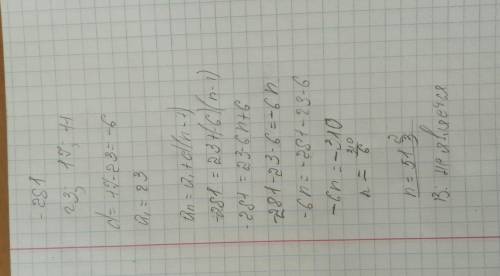 -281
23; 17; 11
d = 17-23 = -6
a₁ = 23
aₙ = a₁ + d(n-1)
-281 = 23+(-6)(n-1)
-281 = 23-6n+6
-281-23-6 = -6n
-6n = -281-23-6
-6n = -310
n = 310/6
n = 51 2/3
В: не является